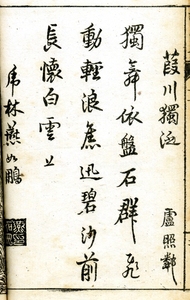 葭川獨泛 盧照鄰
獨舞依盤石群飛
動輕浪奮迅碧沙前
長懷白雲上
虎林燕如鵬